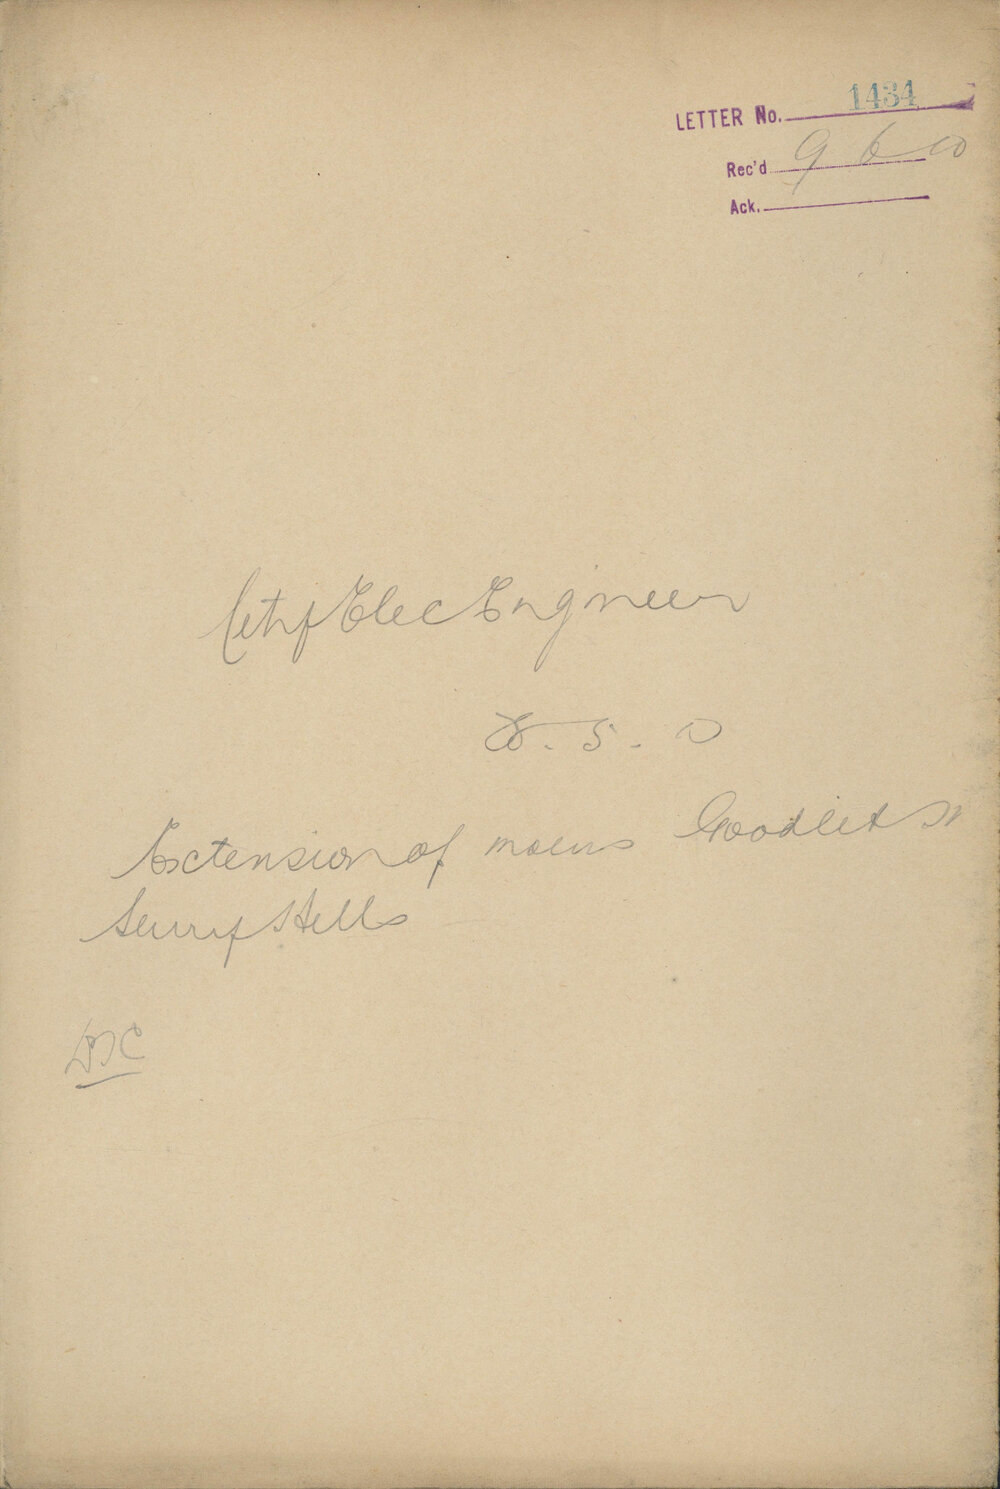 LETTER No. 1434
Rec'd 9 6 10
Ack.
City Elec Engineer
8. 5. 10
Extension of mains Goodlet St
Surry Hills